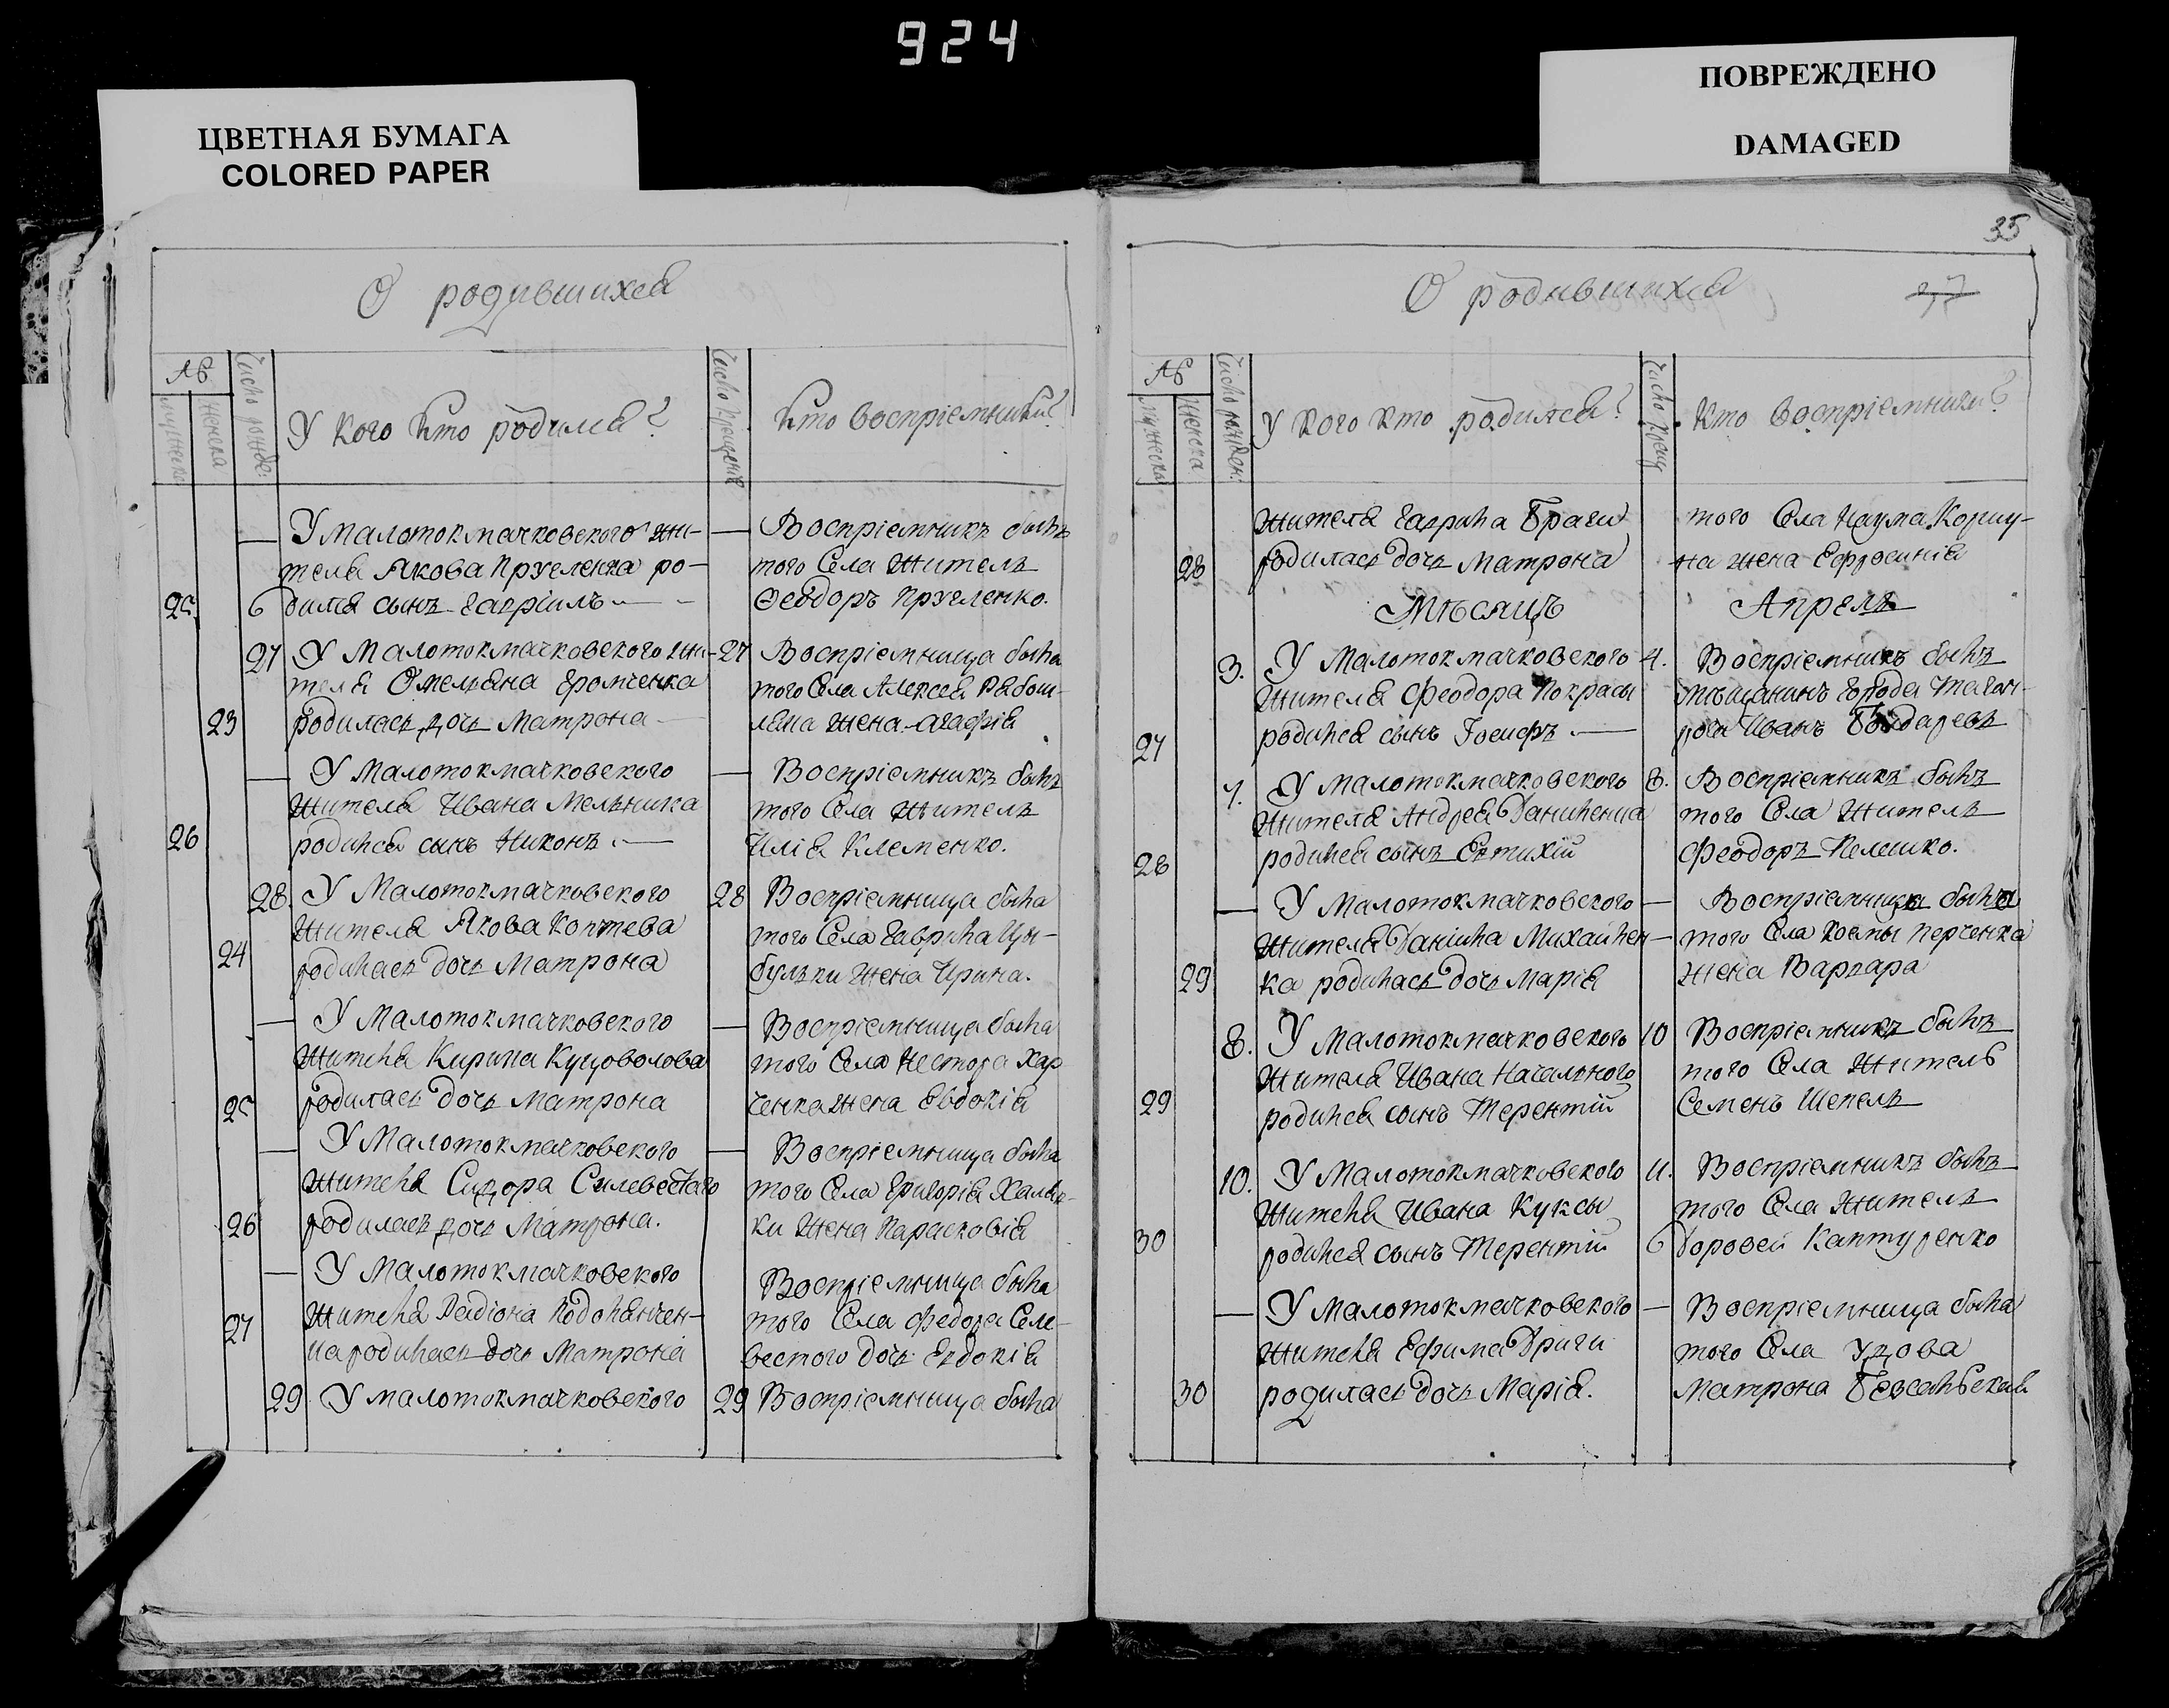 924
ЦВЕТНАЯ БУМАГА
COLORED PAPER
ПОВРЕЖДЕНО
DAMAGED
О родившихся
№
мужеска
женска
Число рожде:
У кого кто родился?
Число крещенія
Кто воспріемники?
— У малотокмачковского жи-
теля Якова Пругленка ро-
25 6 дился сынъ Гавріилъ —
— Воспріемникъ былъ
того Села Житель
Феодоръ Пругленко.
27 У Малотокмачковского жи-
теля Омельяна Еромченка
23 родилась дочь Матрона —
27 Воспріемница была
того Села Алексея Рябош-
ляна жена Агафія
— У Малотокмачковского
Жителя Ивана Мельника
26 родился сынъ Никонъ. —
— Воспріемникъ былъ
того Села Житель
Илія Клеменко.
28. У Малотокмачковского
Жителя Якова Коптева
24 родилась дочь Матрона
28 Воспріемница была
того Села Гаврила Цы-
бульки жена Ирина.
— У Малотокмачковского
Жителя Кирила Куцоволова
25 родилась дочь Матрона
— Воспріемница была
того Села Нестора Хар
ченка жена Евдокія
— У Малотокмачковского
Жителя Сидора Силевестого
26 родилась дочь Матрона.
— Воспріемница была
того Села Григорія Халяв-
ки Жена Парасковія
— У Малотокмачковского
27 Жителя Радіона Подолянчен-
ка родилась дочь Матрона
Воспріемница была
того Села Федора Селе-
вестого дочь Евдокія
29 У малотокмачковского
29 Воспріемница была
35
О родившихся
37
№
мужеска
женска
Число рожден:
У кого кто родился?
Число крещ
Кто воспріемники?
Жителя Гаврила Браги
28 родилась дочь Матрона
того Села Наума Коршу-
на жена Ефросинія
Мѣсяцъ Апрель
3. У Малотокмачковского
Жителя Феодора Покрасы
27 родился сынъ Іосифъ. —
4. Воспріемникъ былъ
мѣщанинъ города Таган-
рога Иванъ Бондаревъ
7. У Малотокмачковского
Жителя Андрея Даниленка
28 родился сынъ Евтихій
8. Воспріемникъ былъ
того Села Житель
Феодоръ Пелешко.
— У Малотокмачковского
Жителя Даніила Михайлен-
29 ка родилась дочь Марія
— Воспріемница была
того Села Космы Перченка
жена Варвара
8. У Малотокмачковского
Жителя Ивана Начального
29 родился сынъ Терентій
10 Воспріемникъ былъ
того Села Житель
Семенъ Шепель
10. У Малотокмачковского
Жителя Ивана Куксы
30 родился сынъ Терентій
11. Воспріемникъ былъ
того Села Житель
Боровей Каптуренко
— У Малотокмачковского
Жителя Ефима Дриги
30 родилась дочь Марія.
— Воспріемница была
того Села Удова
Матрона Бевсальская